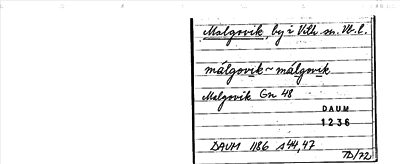 Malgovik, by i Vilh. sn. Vb. l.
málgovik ~ málgovik
Malgovik Gn 48
DAUM
1236
DAUM 1186 s 44, 47
TD/72